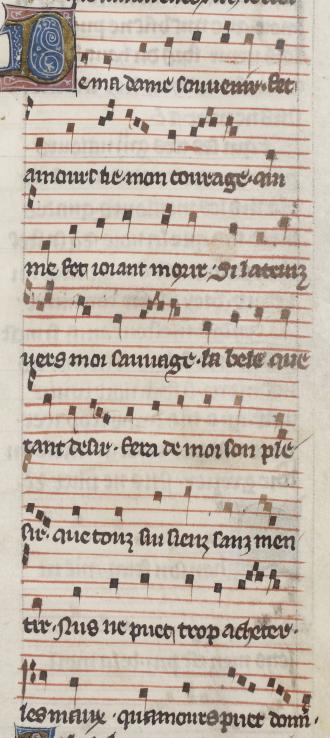 De ma dame souvenir · fet
amours lie mon courage · qui
me fet ioiant morir · Si la truiz
vers moi sauvage · la bele que
tant desir · fera de moi son ple
sir · que touz sui siens sanz men
tir · Nus ne puet trop acheter ·
les maux · qu'amours puet donn̄ ·